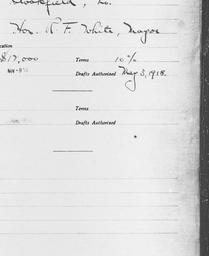 Brookfield,
Hon. R. F. White, Mayor
$17,000 Terms 10%
Drafts Authorized May 3, 1918.
Terms
Drafts Authorized